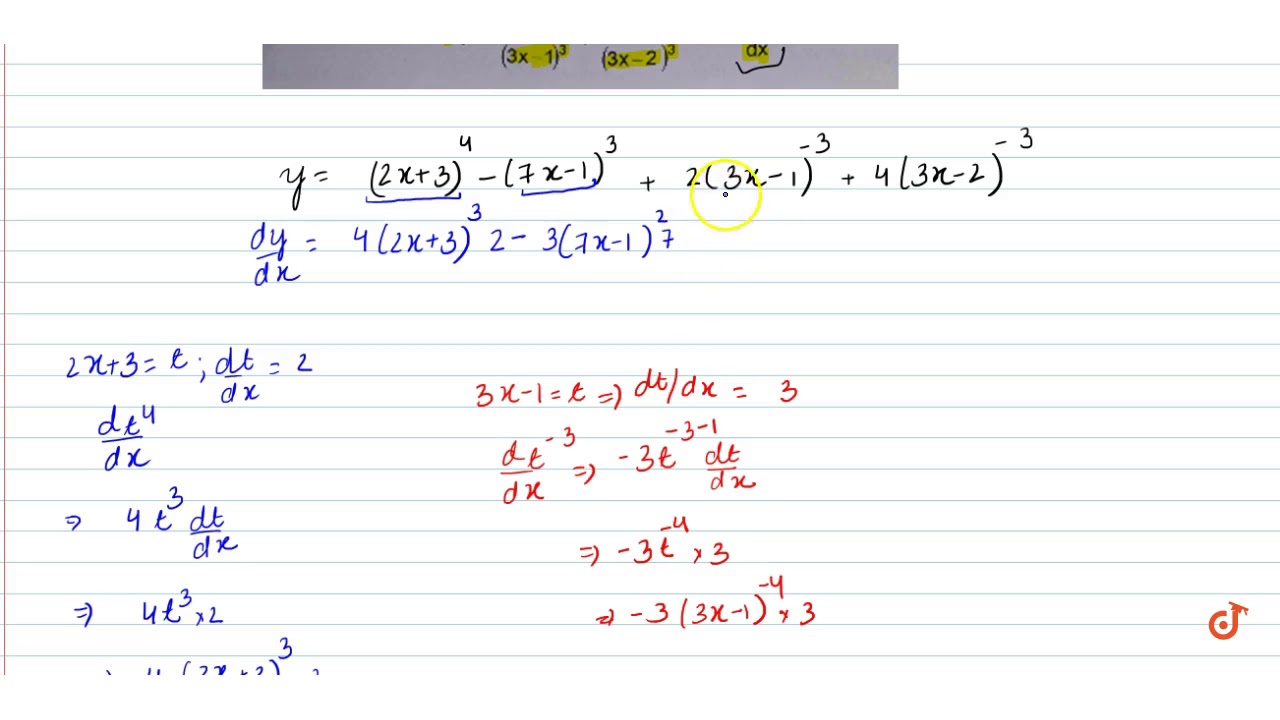 (3x-1)³ (3x-2)³ dx
y = (2x+3)⁴ - (7x-1)³ + 2(3x-1)⁻³ + 4(3x-2)⁻³
dy/dx = 4(2x+3)³ 2 - 3(7x-1)² 7
2x+3 = t ; dt/dx = 2
dt⁴/dx
⇒ 4t³ dt/dx
⇒ 4t³ × 2
3x-1 = t ⇒ dt/dx = 3
dt⁻³/dx ⇒ -3t⁻³⁻¹ dt/dx
⇒ -3t⁻⁴ × 3
⇒ -3(3x-1)⁻⁴ × 3